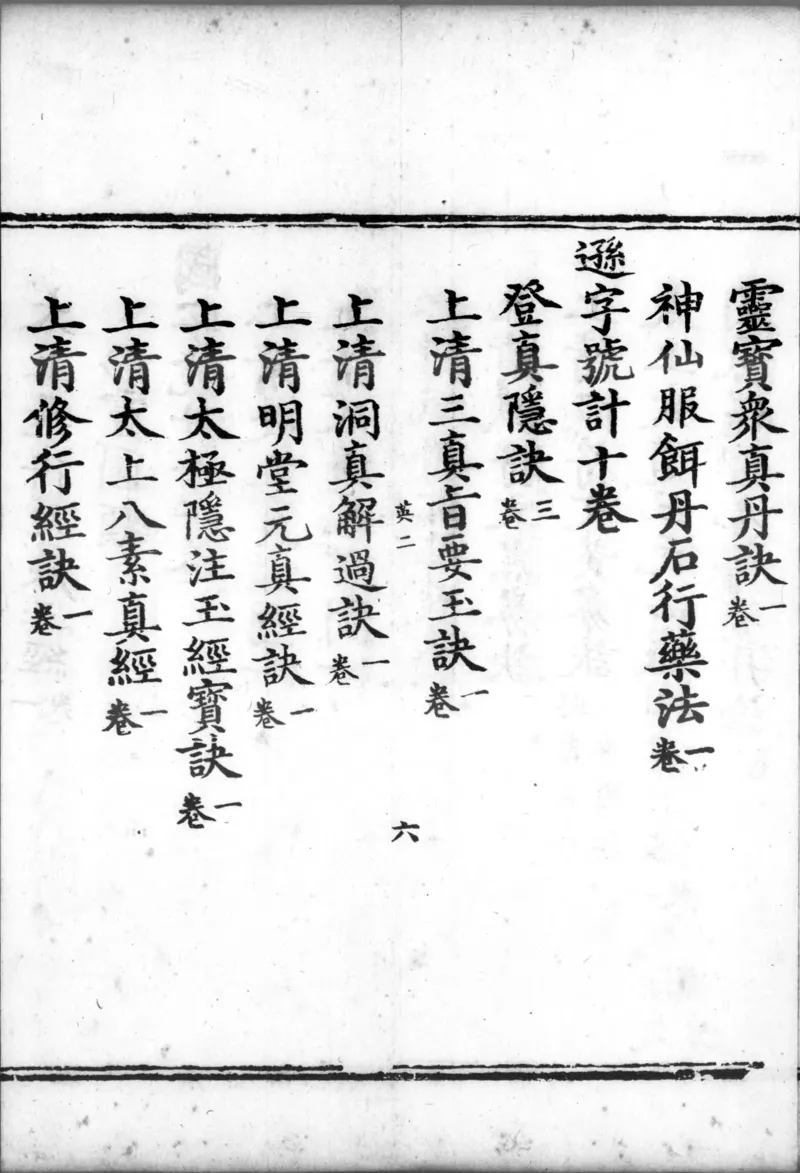 靈寶衆真丹訣一卷
神仙服餌丹石行藥法一卷
遜字號計十卷
登真隱訣三卷
上清三真旨要玉訣一卷
英二
六
上清洞真解過訣一卷
上清明堂元真經訣一卷
上清太極隱注玉經寶訣一卷
上清太上八素真經一卷
上清修行經訣一卷